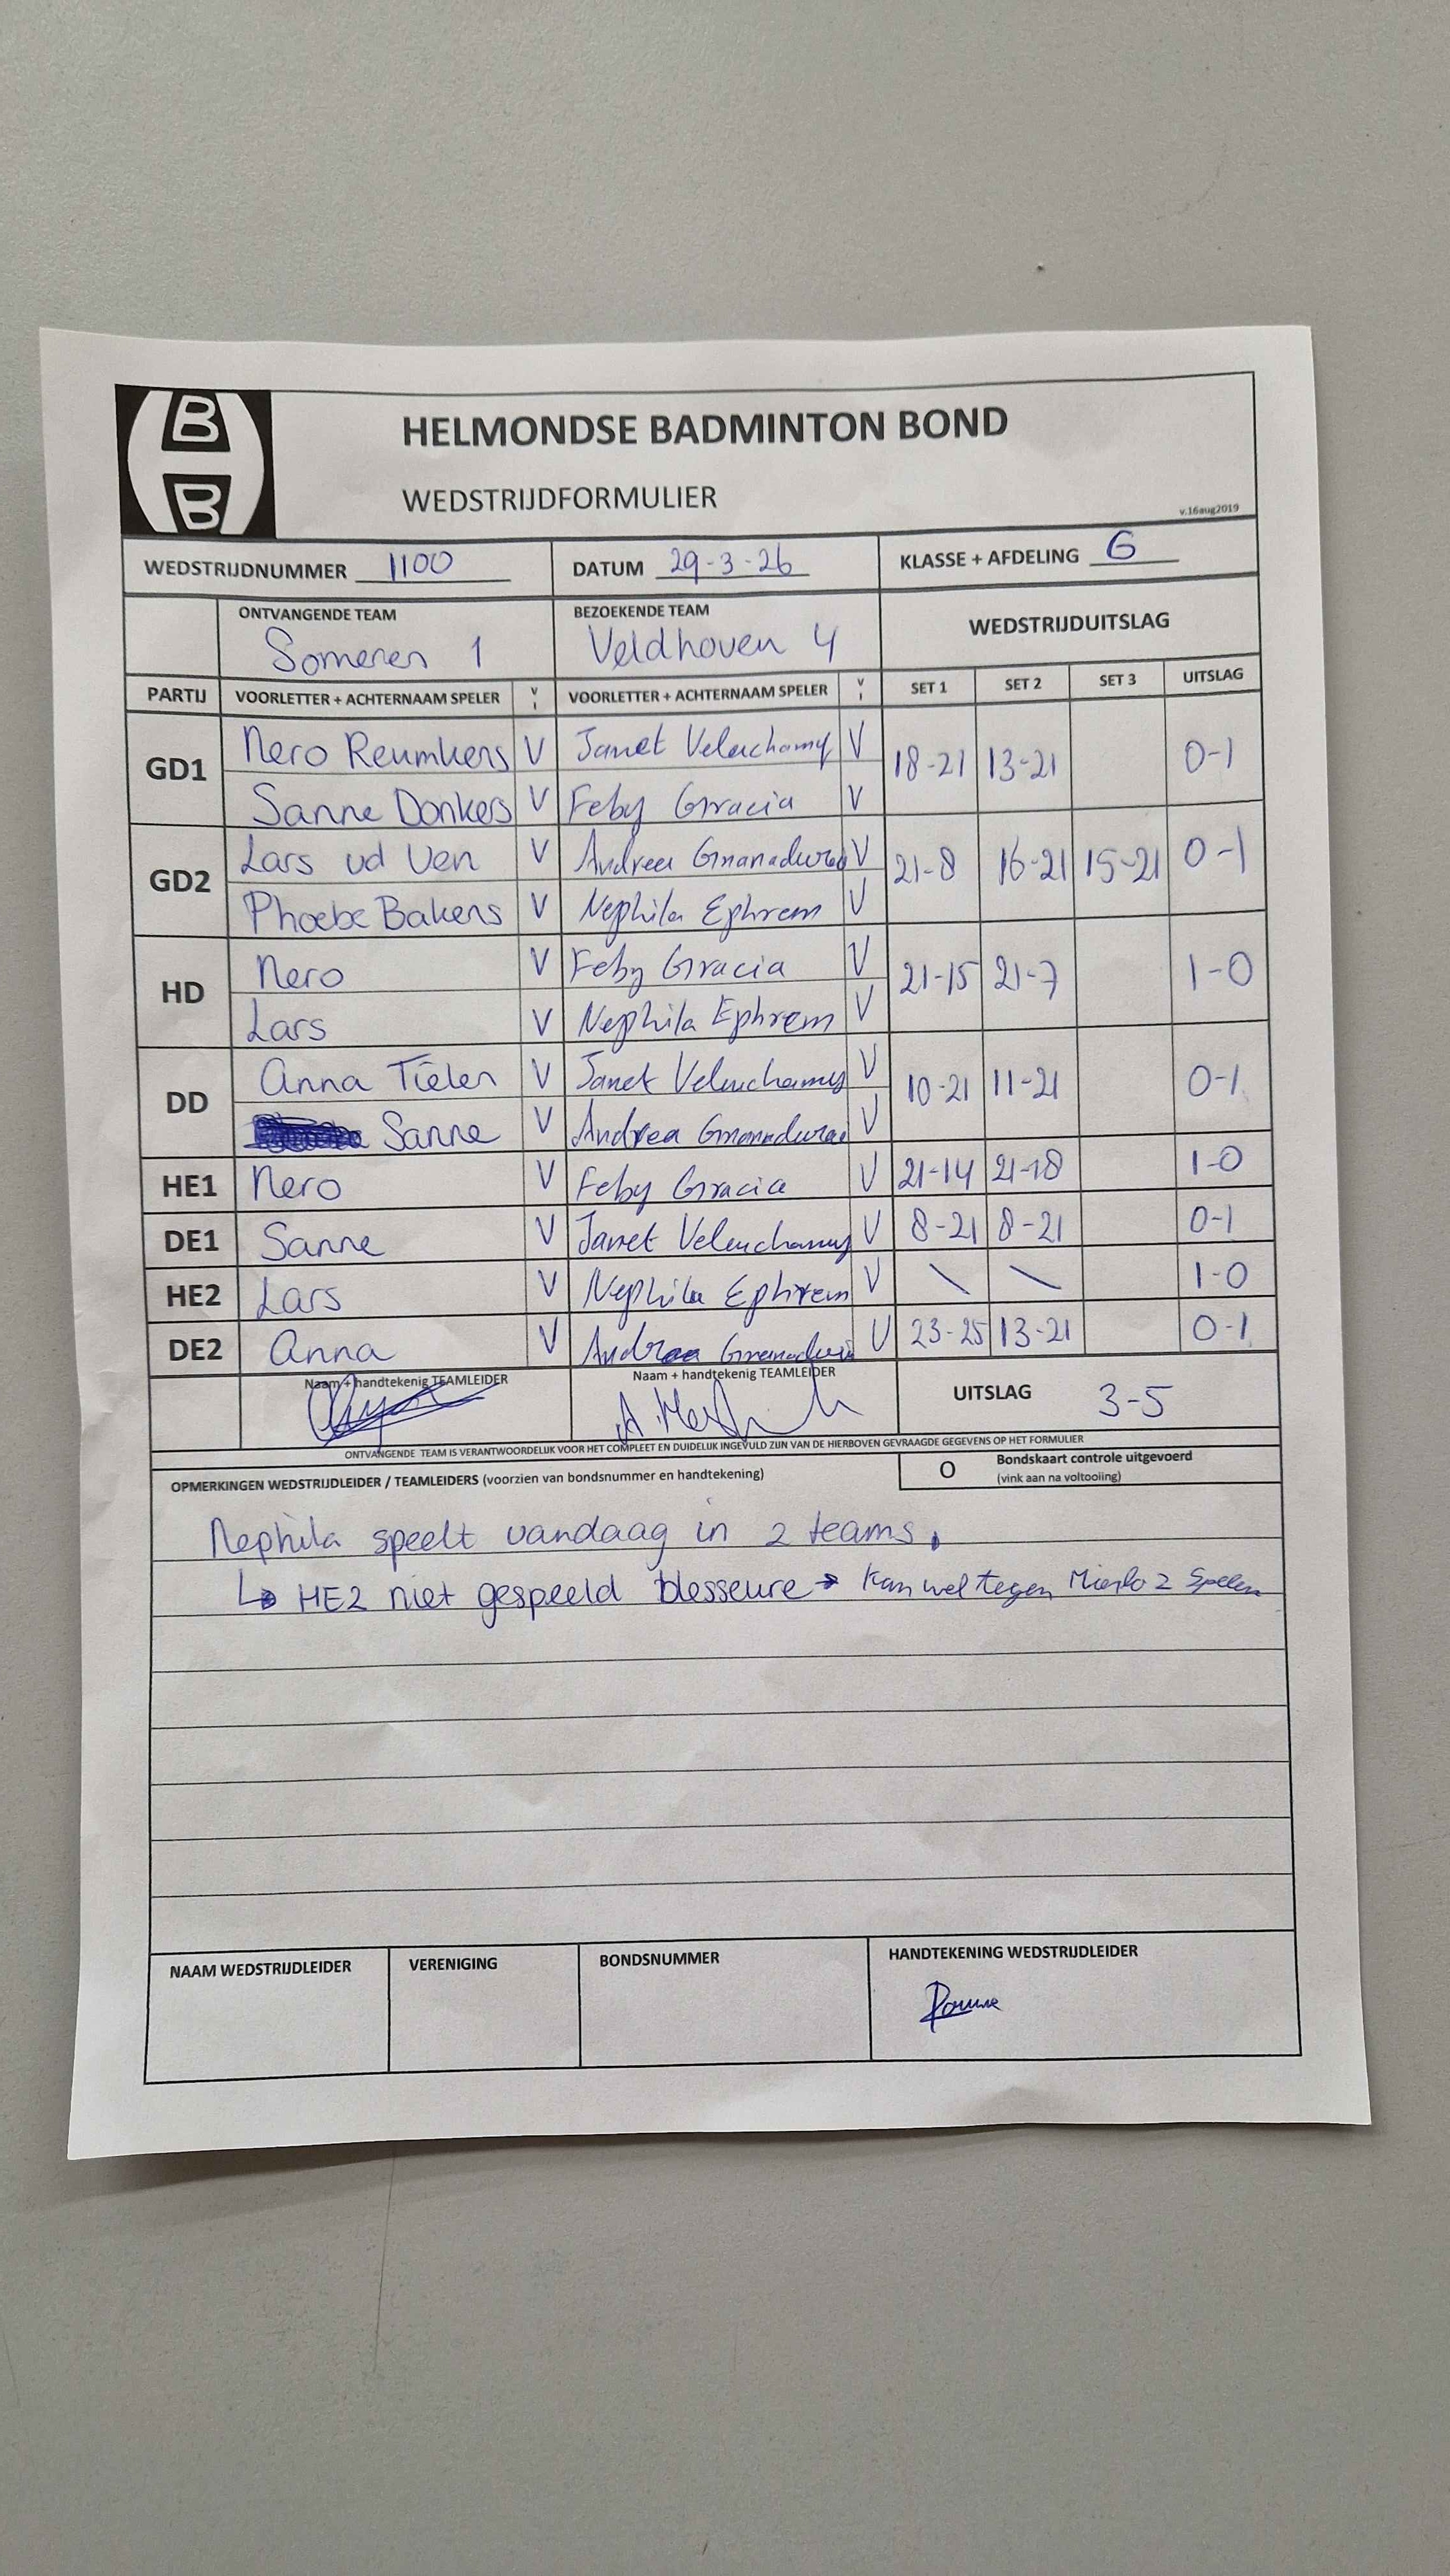 B
B
HELMONDSE BADMINTON BOND
WEDSTRIJDFORMULIER
v.16aug2019
WEDSTRIJDNUMMER 1100 DATUM 29-3-26 KLASSE + AFDELING 6
ONTVANGENDE TEAM BEZOEKENDE TEAM WEDSTRIJDUITSLAG
Someren 1 Veldhoven 4
PARTIJ VOORLETTER + ACHTERNAAM SPELER V I VOORLETTER + ACHTERNAAM SPELER V I SET 1 SET 2 SET 3 UITSLAG
GD1 Nero Reumkens V Janet Veluchamy V 18-21 13-21 0-1
Sanne Donkers V Feby Gracia V
GD2 Lars vd Ven V Andrea V 21-8 16-21 15-21 0-1
Phoebe Bakens V Nephila Ephrem V
HD Nero V Feby Gracia V 21-15 21-7 1-0
Lars V Nephila Ephrem V
DD Anna Tielen V Janet Veluchamy V 10-21 11-21 0-1
Sanne V Andrea V
HE1 Nero V Feby Gracia V 21-14 21-18 1-0
DE1 Sanne V Janet Veluchamy V 8-21 8-21 0-1
HE2 Lars V Nephila Ephrem V \ \ 1-0
DE2 Anna V Andrea V 23-25 13-21 0-1
Naam + handtekenig TEAMLEIDER Naam + handtekenig TEAMLEIDER UITSLAG 3-5
ONTVANGENDE TEAM IS VERANTWOORDELIJK VOOR HET COMPLEET EN DUIDELIJK INGEVULD ZIJN VAN DE HIERBOVEN GEVRAAGDE GEGEVENS OP HET FORMULIER
OPMERKINGEN WEDSTRIJDLEIDER / TEAMLEIDERS (voorzien van bondsnummer en handtekening) O Bondskaart controle uitgevoerd
(vink aan na voltooiing)
Nephila speelt vandaag in 2 teams.
↳ HE2 niet gespeeld blesseure → kan wel tegen Mierlo 2 spelen
NAAM WEDSTRIJDLEIDER VERENIGING BONDSNUMMER HANDTEKENING WEDSTRIJDLEIDER